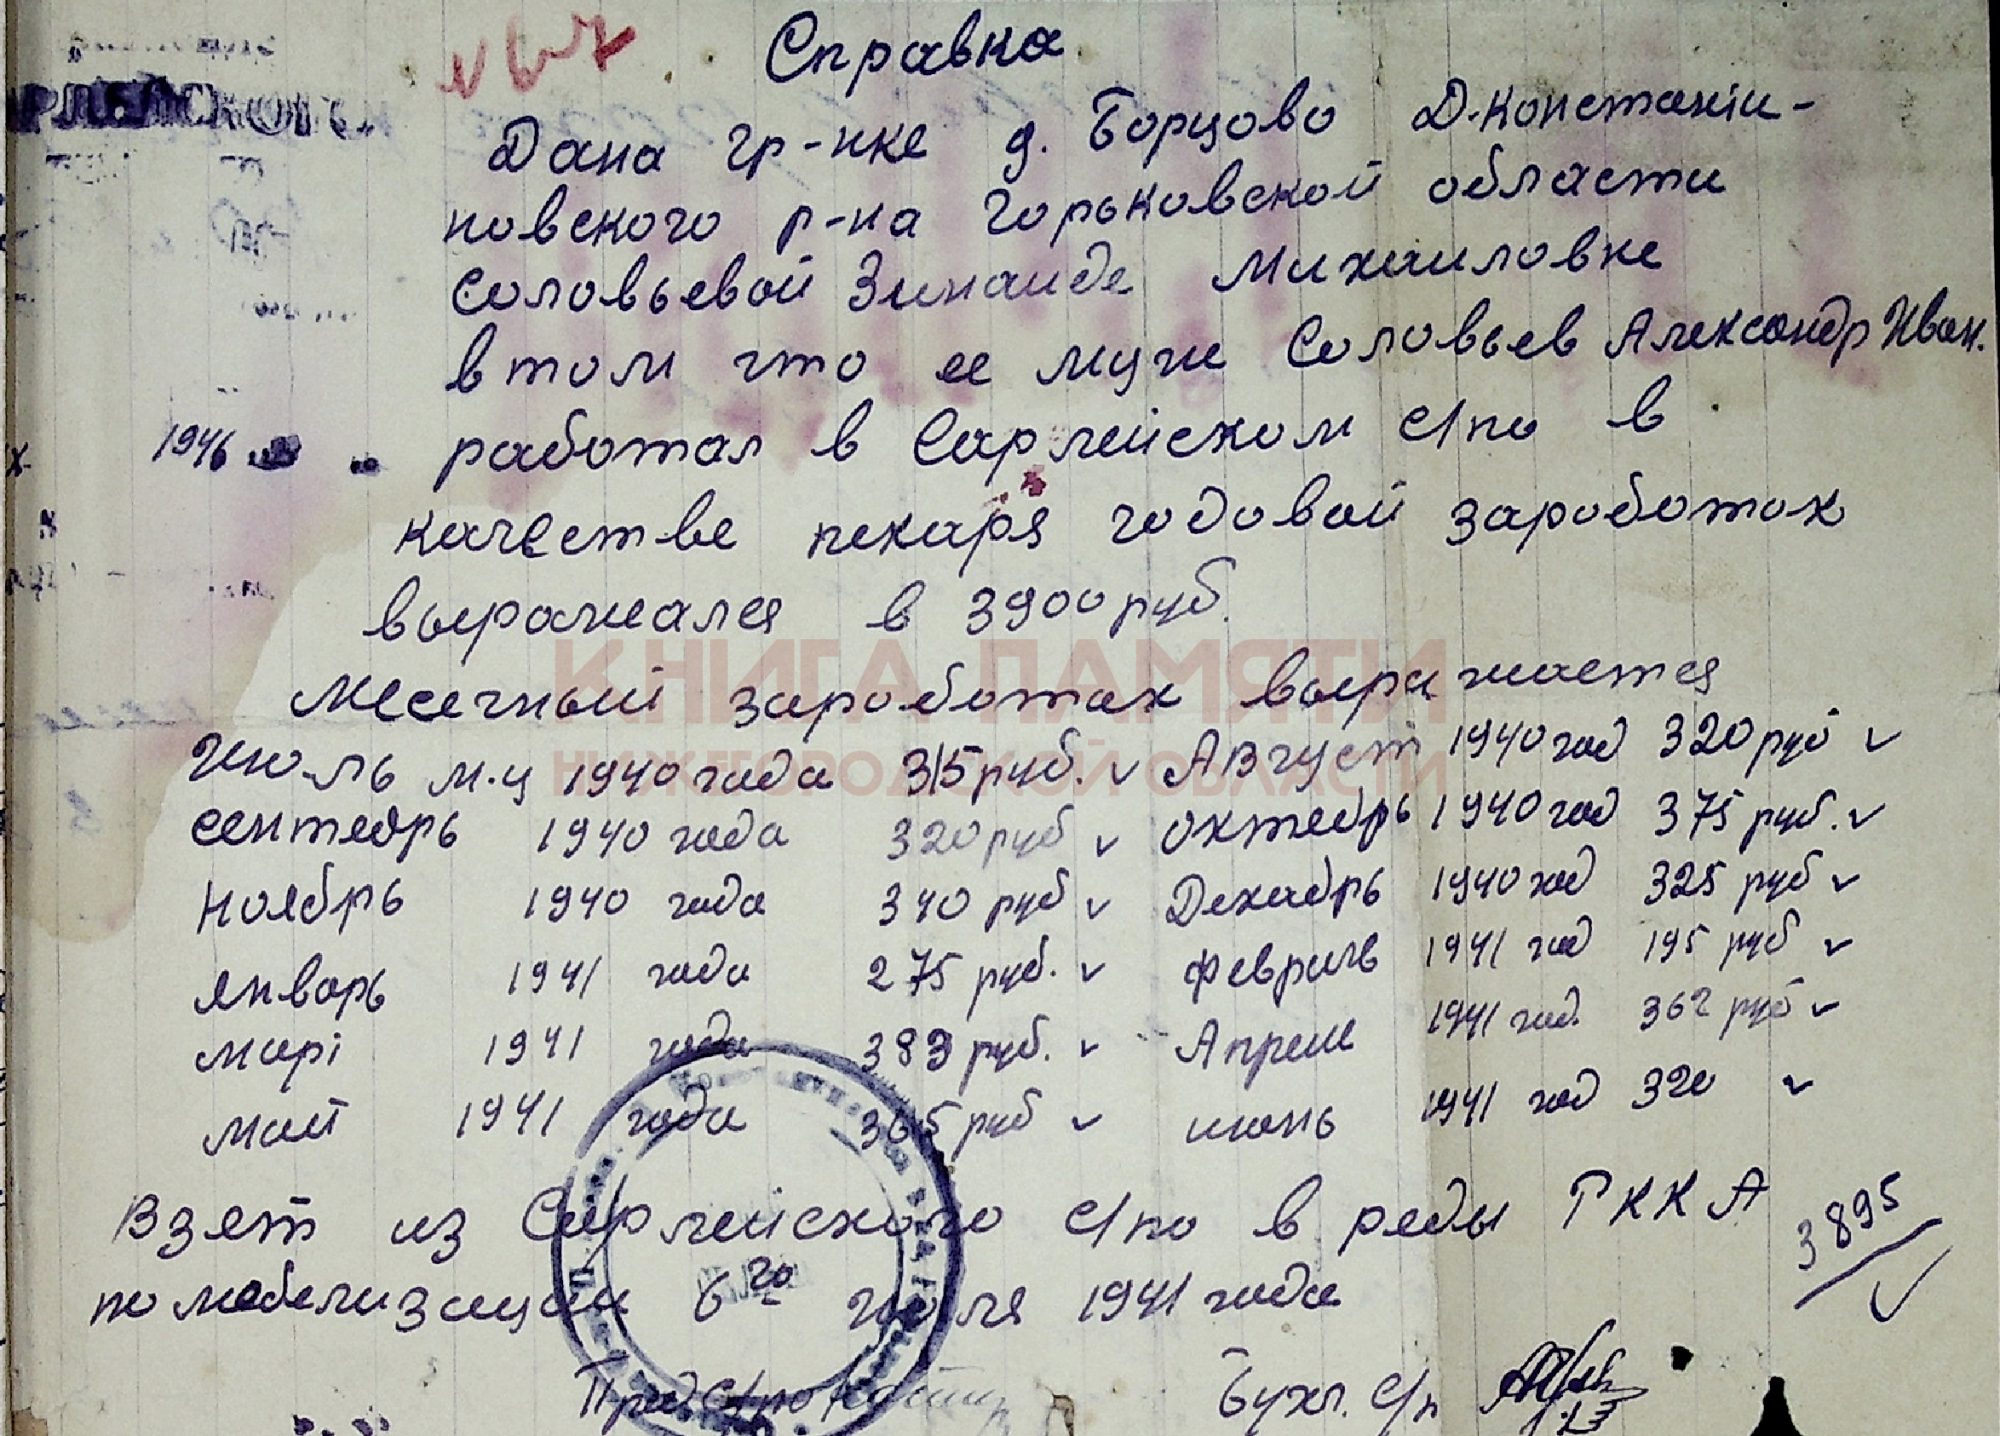 Справка
Дана гр-нке д. Борцово Д.Константи-
новского р-на Горьковской области
Соловьевой Зинаиде Михаиловне
в том что ее муж Соловьев Александр Иван.
1946 работал в Сарлейском с/по в
качестве пекаря годовой заработок
выражался в 3900 руб.
Месечный заработак выражается
Июль м-ц 1940 года 315 руб. ✓ Август 1940 год 320 руб ✓
сентебрь 1940 года 320 руб ✓ октебрь 1940 год 375 руб. ✓
Ноябрь 1940 года 340 руб ✓ Декабрь 1940 год 325 руб ✓
январь 1941 года 275 руб. ✓ февраль 1941 год 195 руб ✓
март 1941 года 383 руб. ✓ Апрель 1941 год. 362 руб ✓
май 1941 года 365 руб ✓ июнь 1941 год 320 ✓
Взет из Сарлейского с/по в реды РККА
3895
по мобелизации 6го июля 1941 года
Пред с/по Бухг. с/п
КНИГА ПАМЯТИ
НИЖЕГОРОДСКОЙ ОБЛАСТИ